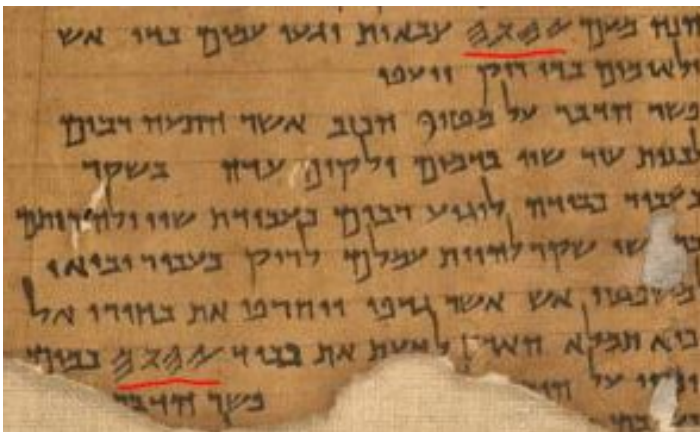 הנה מעם 𐤉𐤄𐤅𐤄 צבאות יגעו עמים בדי אש
ולאומים בדי ריק וייעפו
פשר הדבר על מטיף הכזב אשר התעה רבים
לבנות עיר שוו בדמים ולקים עדה בשקר
בעבור כבודה לוגיע רבים בעבודת שוו ולהרותם
שקר להיות עמלם לריק בעבור יבואו
למשפטי אש אשר גדפו ויחרפו את בחירי אל
כיא תמלא הארץ לדעת את כבוד 𐤉𐤄𐤅𐤄 כמים
יכסו על פשר הדבר